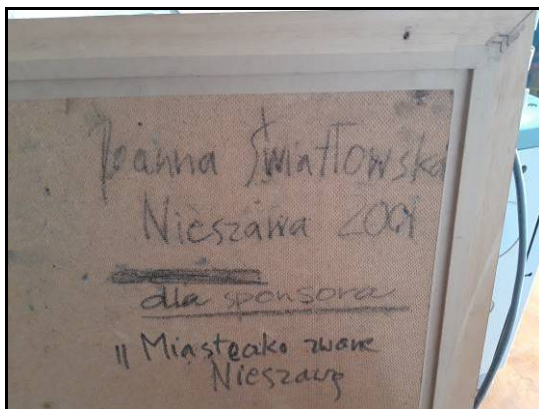 Joanna Światłowska
Nieszawa
dla sponsora
" Miasteczko zwane
Nieszawą